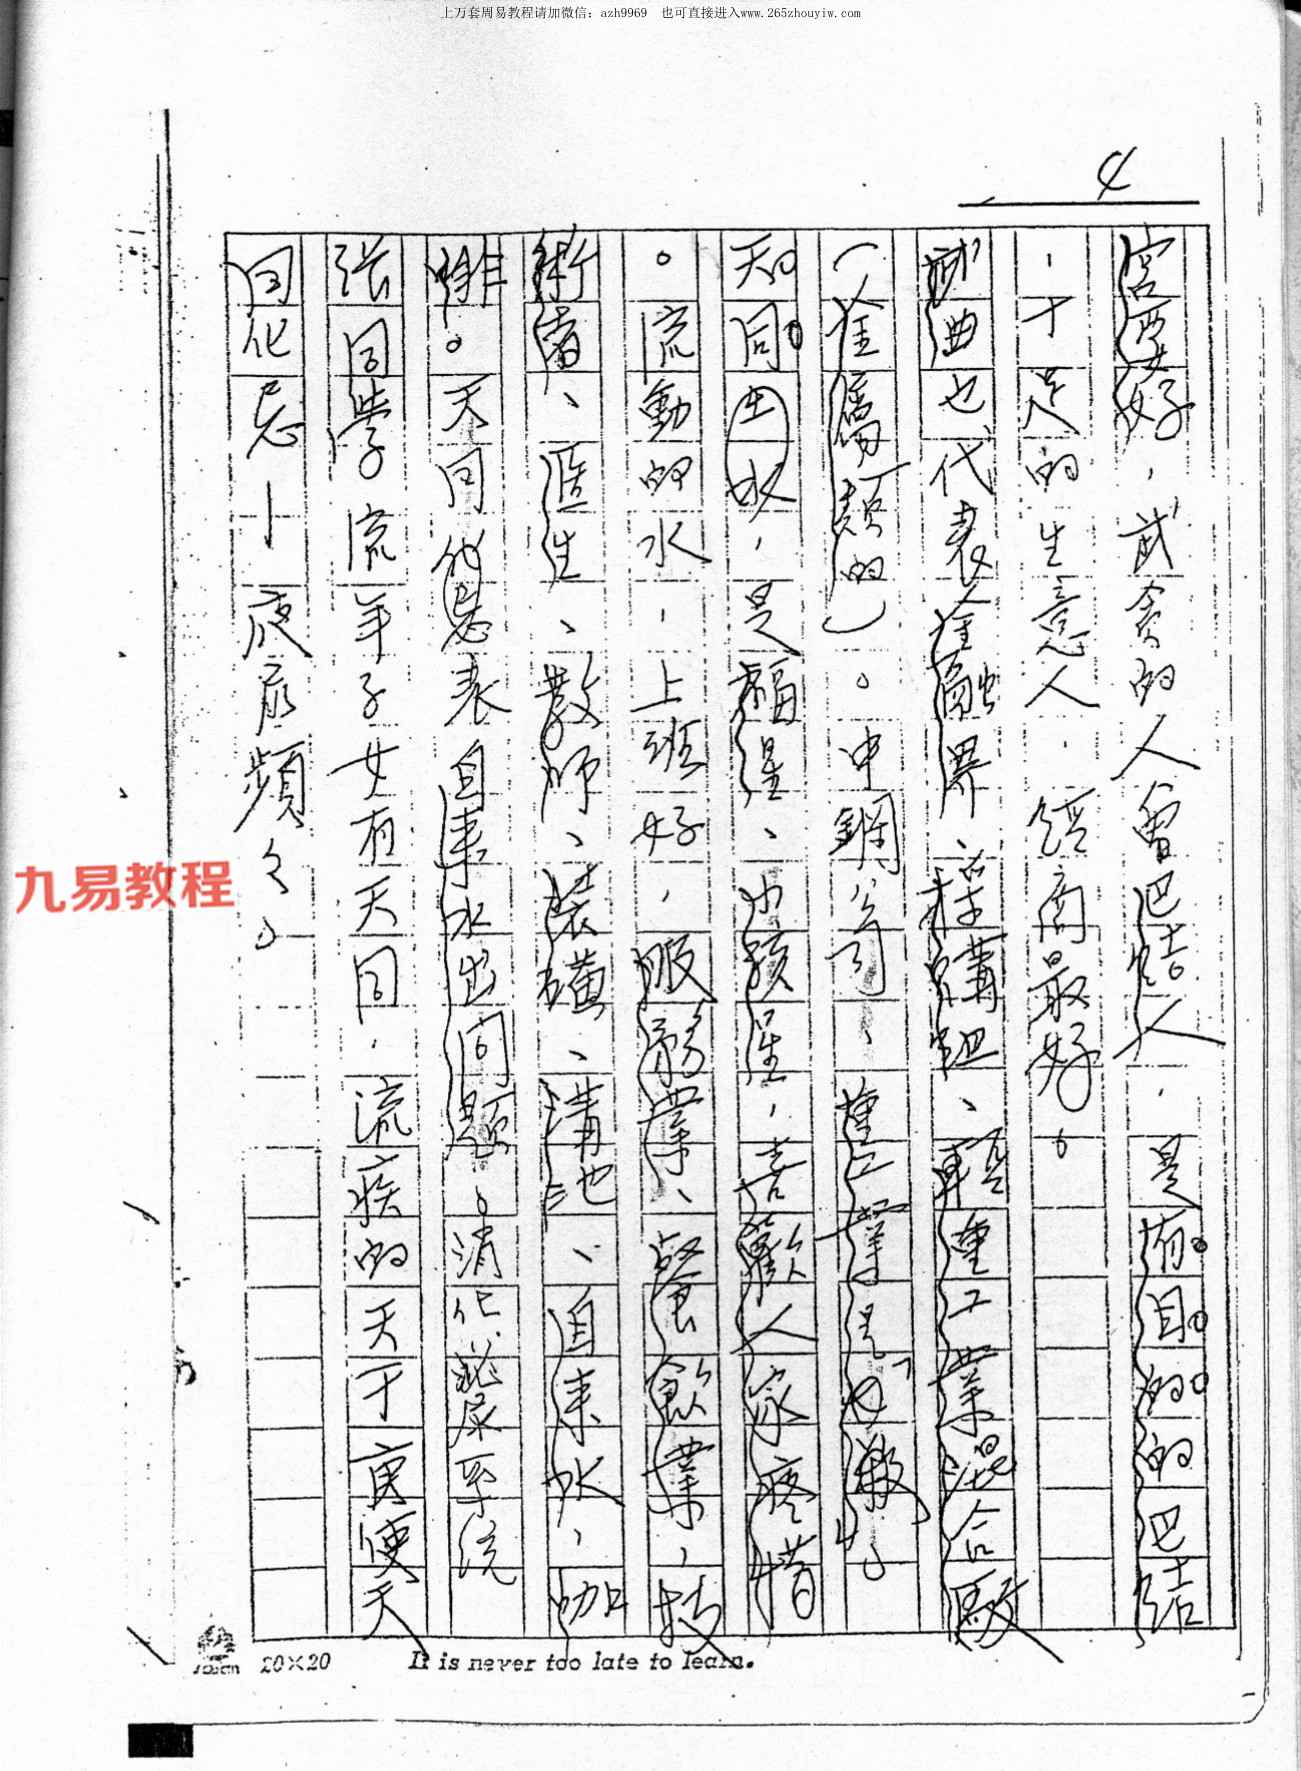 上万套周易教程请加微信：azh9969 也可直接进入www.265zhouyiw.com
4
宮要好，武貪的人會巴結人，是有目的的巴結
，十足的生意人，經商最好。
武曲也代表金融界、社講組、輕重工業混合廠
（金屬類的）。中鋼公司、重工業是也
天同田水，是福星、小孩星，喜歡人家疼惜
。流動的水，上班好，服務業、餐飲業，技
術者、醫生、教師、裝潢、溝池、自來水，咖
啡。天同化忌表自來水出問題。消化泌尿系統
張同學流年子女有天同，流疾的天干庚使天
同化忌－夜尿頻々。
九易教程
20×20 It is never too late to learn.